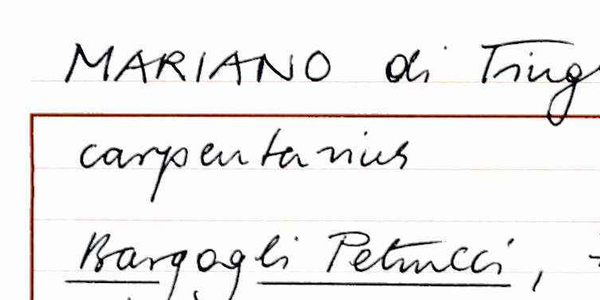 MARIANO di
carpentarius
Bargagli Petrucci,